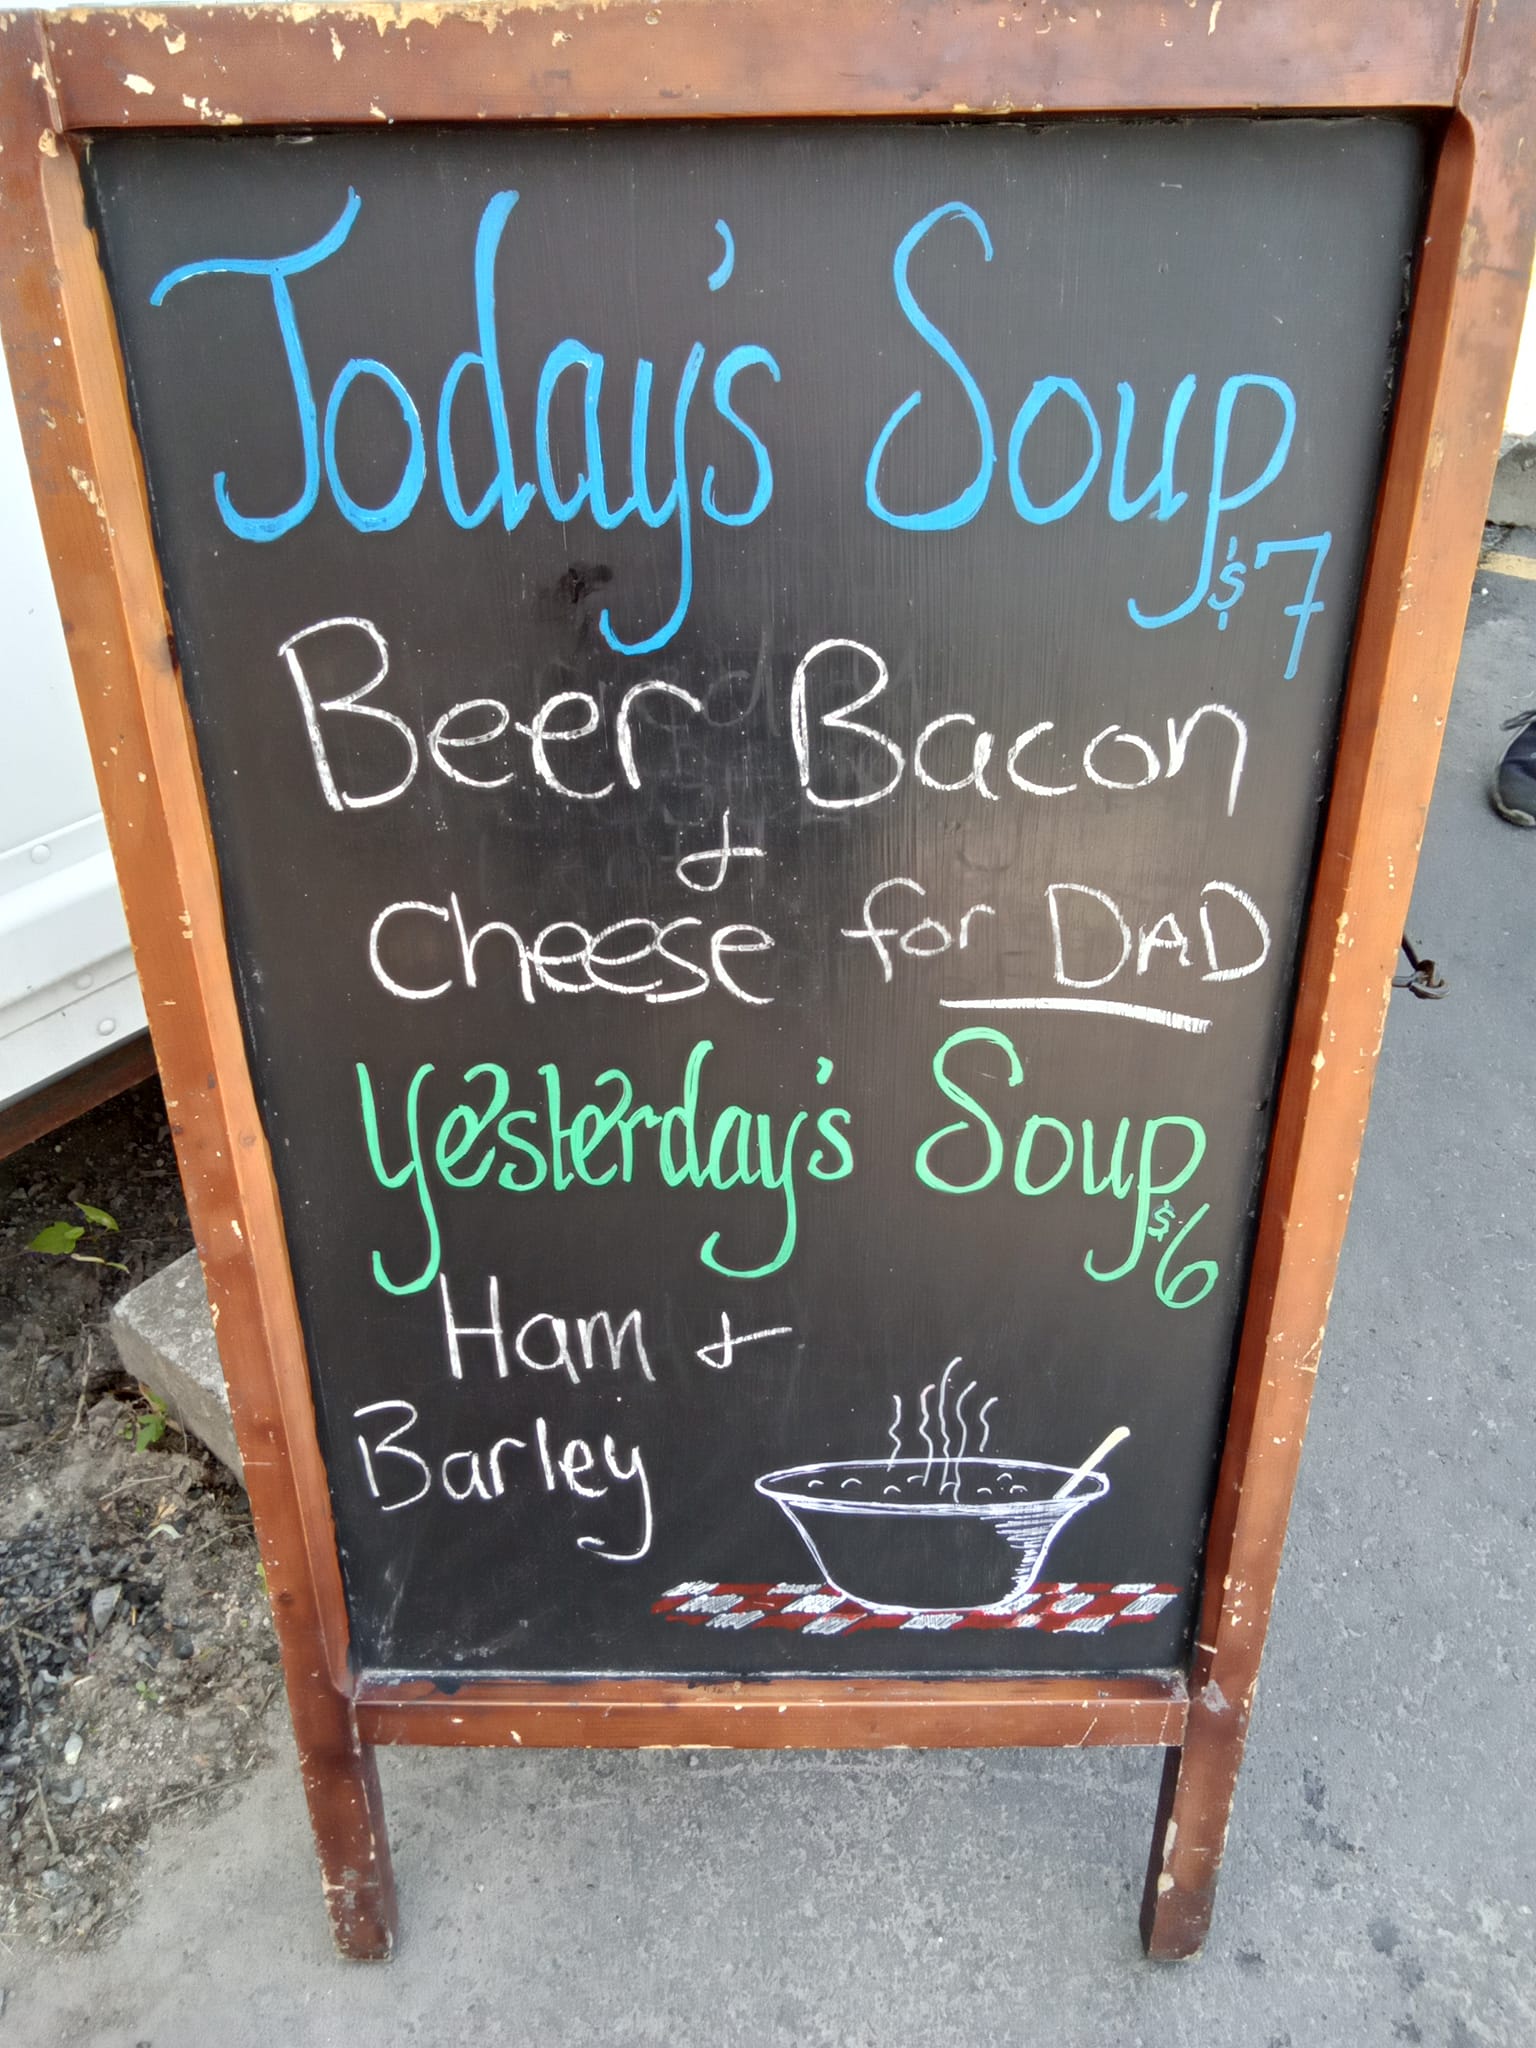 Today's Soup
$7
Beer Bacon
&
Cheese for DAD
Yesterday's Soup
$6
Ham &
Barley